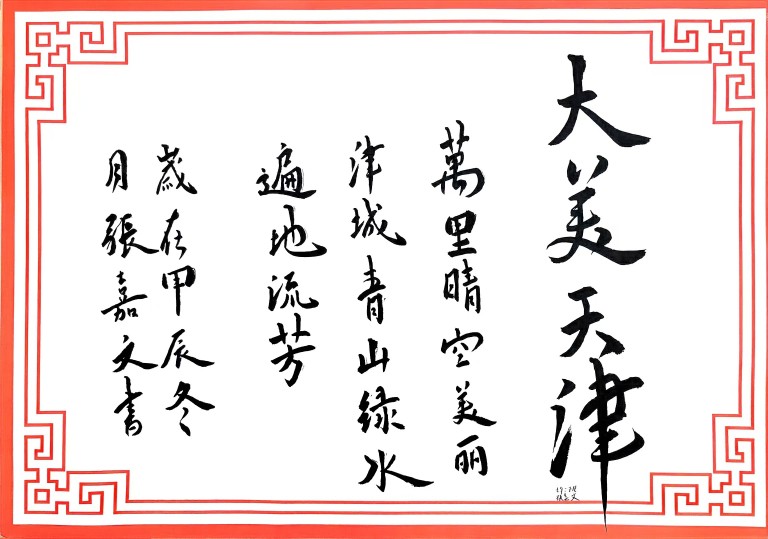 大美天津
萬里晴空美丽
津城青山绿水
遍地流芳
歲在甲辰冬
月張嘉文書